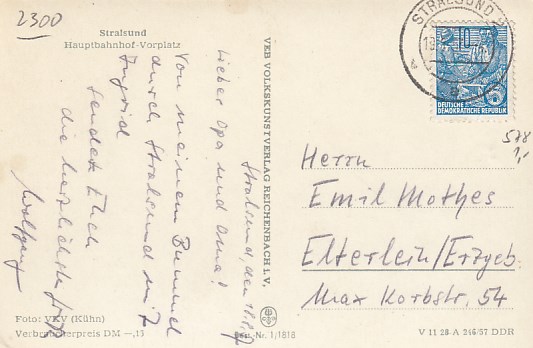 2300
Stralsund
Hauptbahnhof-Vorplatz
Stralsund, den
Lieber Opa und Oma!
Von meinem Bummel
durch Stralsund mit
Ingrid
sendet Euch
die herzlichsten
Wolfgang
Foto: VKV (Kühn)
Verbraucherpreis DM —,15
VEB VOLKSKUNSTVERLAG REICHENBACH I. V.
Best.-Nr. 1/1818
STRALSUND
10
DEUTSCHE
DEMOKRATISCHE REPUBLIK
578
1,-
Herrn
Emil Mothes
Elterlein/Erzgeb.
Max Korbstr. 54
V 11 28 A 246/57 DDR